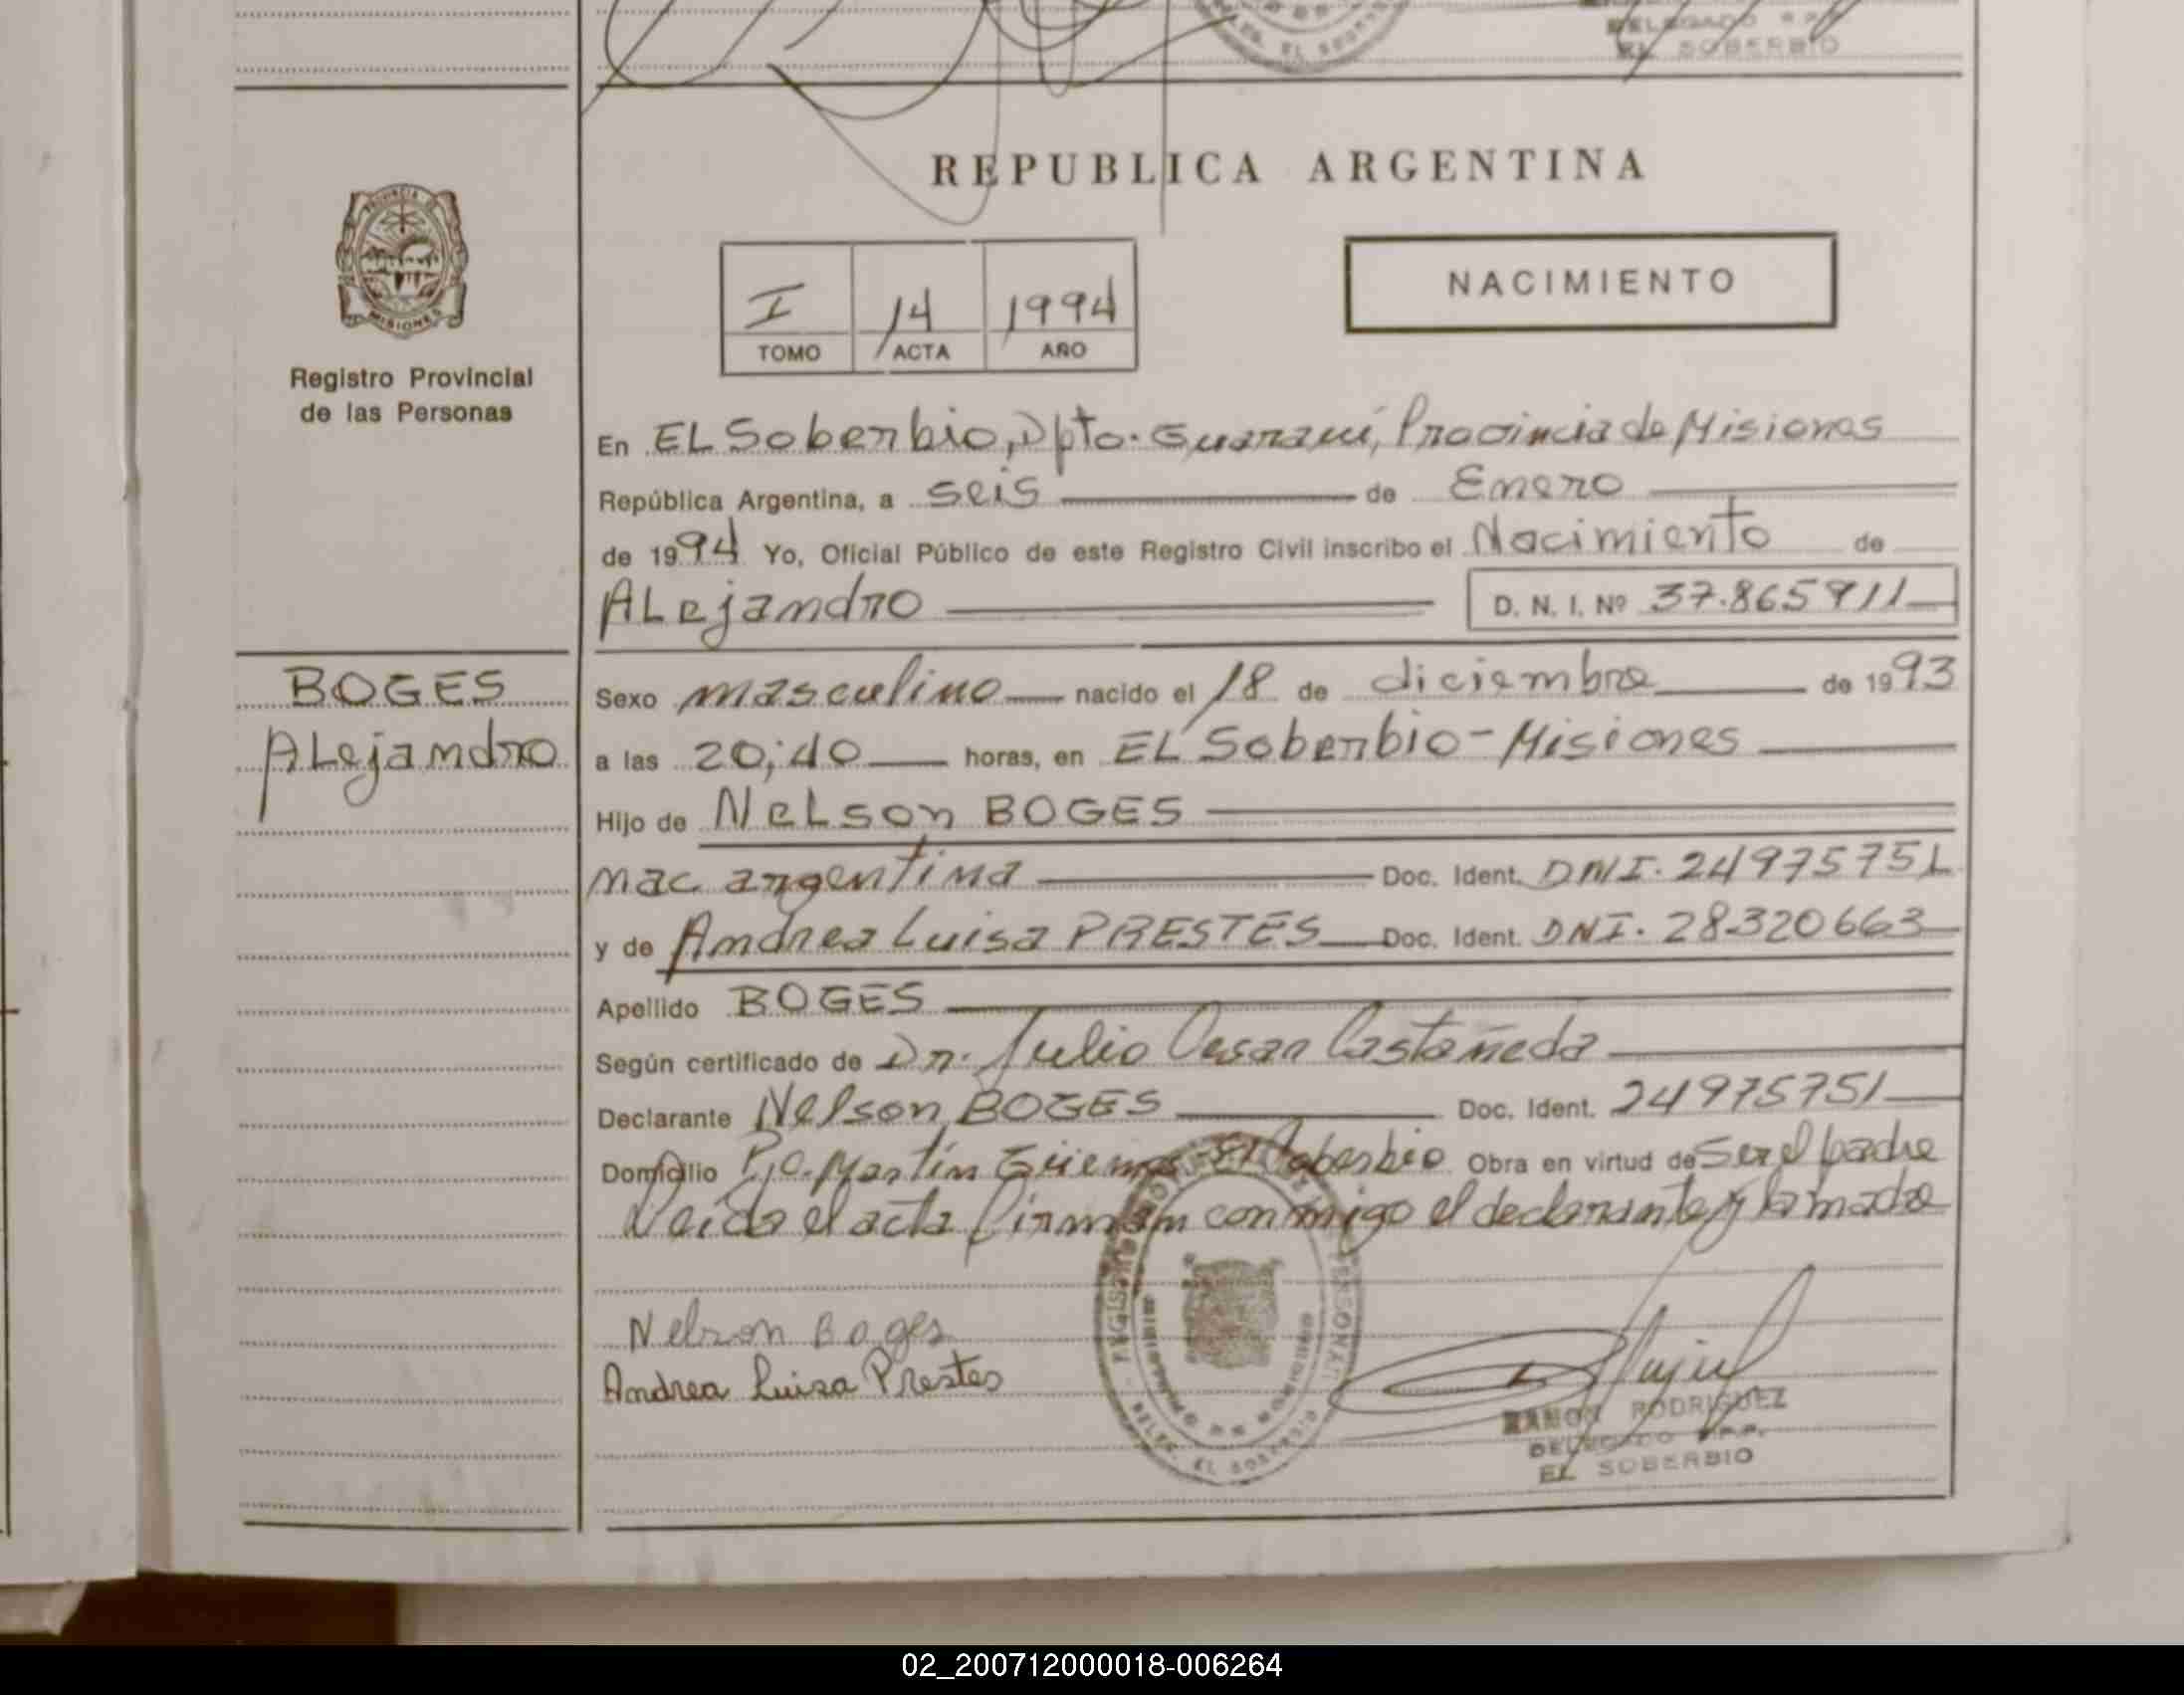 DELEGADO R.P.P.
EL SOBERBIO
REPUBLICA ARGENTINA
PROVINCIA DE
MISIONES
Registro Provincial
de las Personas
I 14 1994
TOMO ACTA AÑO
NACIMIENTO
En EL Soberbio, Dpto. Guaraní, Provincia de Misiones
República Argentina, a seis de Enero
de 1994 Yo, Oficial Público de este Registro Civil inscribo el Nacimiento de
ALejandro D. N. I. Nº 37.865911
BOGES
ALejandro
Sexo masculino nacido el 18 de diciembre de 1993
a las 20;40 horas, en EL Soberbio - Misiones
Hijo de NeLson BOGES
nac argentina Doc. Ident. DNI. 24975751
y de Andrea Luisa PRESTES Doc. Ident. DNI. 28320663
Apellido BOGES
Según certificado de Dr. Julio Cesar Castañeda
Declarante Nelson BOGES Doc. Ident. 24975751
Domicilio Martín Güemes El Soberbio Obra en virtud de Ser el padre
Leída el acta firman conmigo el declarante y la madre
Nelson Boges
Andrea Luisa Prestes
RAMON RODRIGUEZ
DELEGADO R.P.P.
EL SOBERBIO
DELEG. EL SOBERBIO
02_200712000018-006264